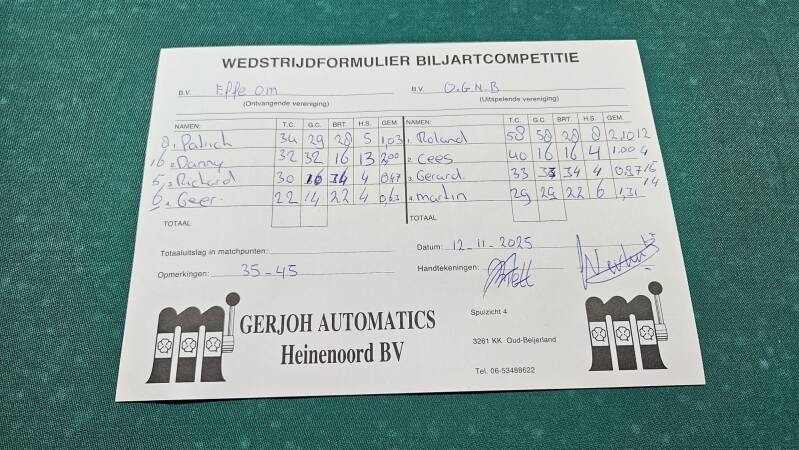 WEDSTRIJDFORMULIER BILJARTCOMPETITIE
B.V. Effe om B.V. O.G.N.B
(Ontvangende vereniging) (Uitspelende vereniging)
NAMEN: T.C. G.C. BRT. H.S. GEM. NAMEN: T.C. G.C. BRT. H.S. GEM.
8 1. Patrick 34 29 28 5 1,03 1. Roland 58 58 28 8 2,10 12
16 2. Danny 32 32 16 13 2,00 2. Cees 40 16 16 4 1,00 4
5 3. Richard 30 16 34 4 0,47 3. Gerard 33 33 34 4 0,97 15
6 4. Geer. 22 14 22 4 0,63 4. martin 29 29 22 6 1,31 14
TOTAAL TOTAAL
Totaaluitslag in matchpunten: Datum: 12-11-2025
Opmerkingen: 35-45 Handtekeningen:
GERJOH AUTOMATICS
Heinenoord BV
Spuizicht 4
3261 KK Oud-Beijerland
Tel. 06-53488622